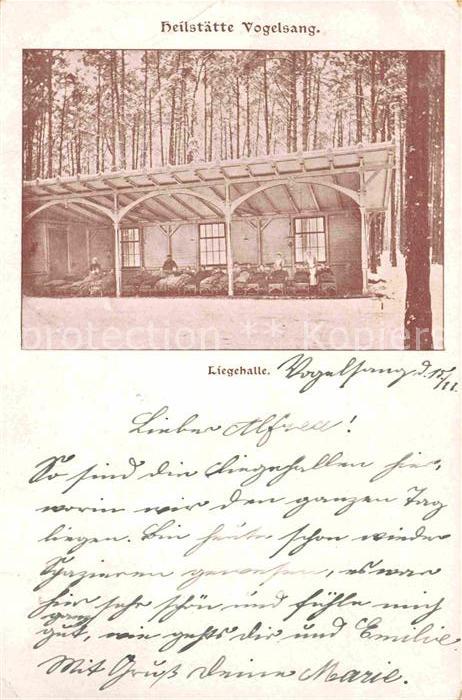 Heilstätte Vogelsang.
protection ** Copyright
Liegehalle.
Vogelsang d. 15/11.
Lieber Alfred!
So sind die Liegehallen hier,
worin wir den ganzen Tag
liegen. Bin heute schon wieder
Spazieren gewesen, es war
hier sehr schön und fühle mich
ganz
gut, wie gehts dir und Emilie
Mit Gruß deine Marie.